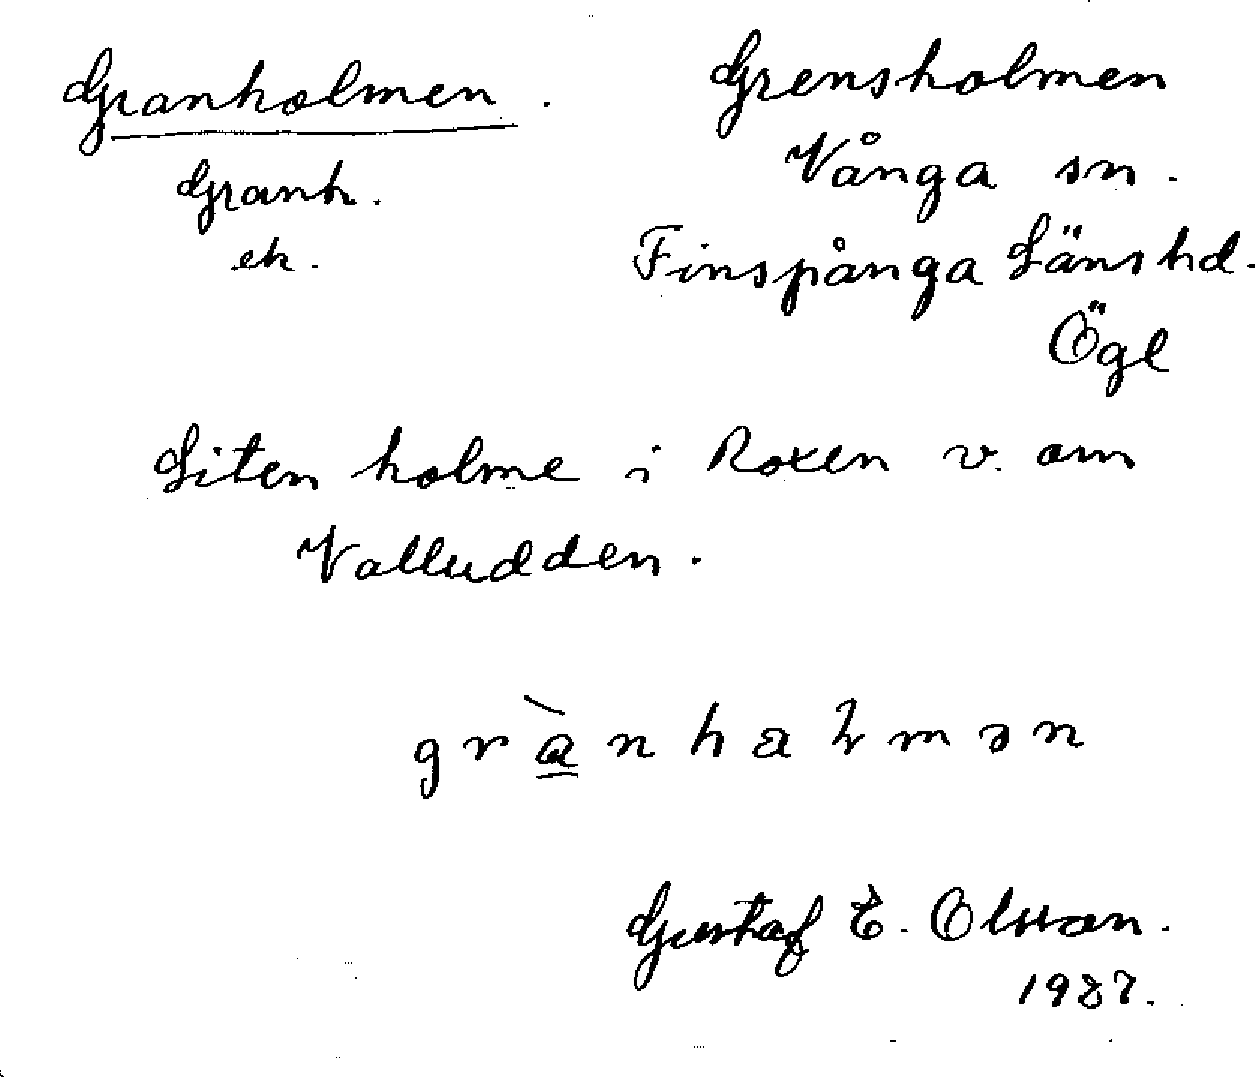 Granholmen.
Granh.
ek.
Grensholmen
Vånga sn.
Finspånga Länshd.
Ögl
Liten holme i Roxen v. om
Valludden.
Gustaf E. Olsson.